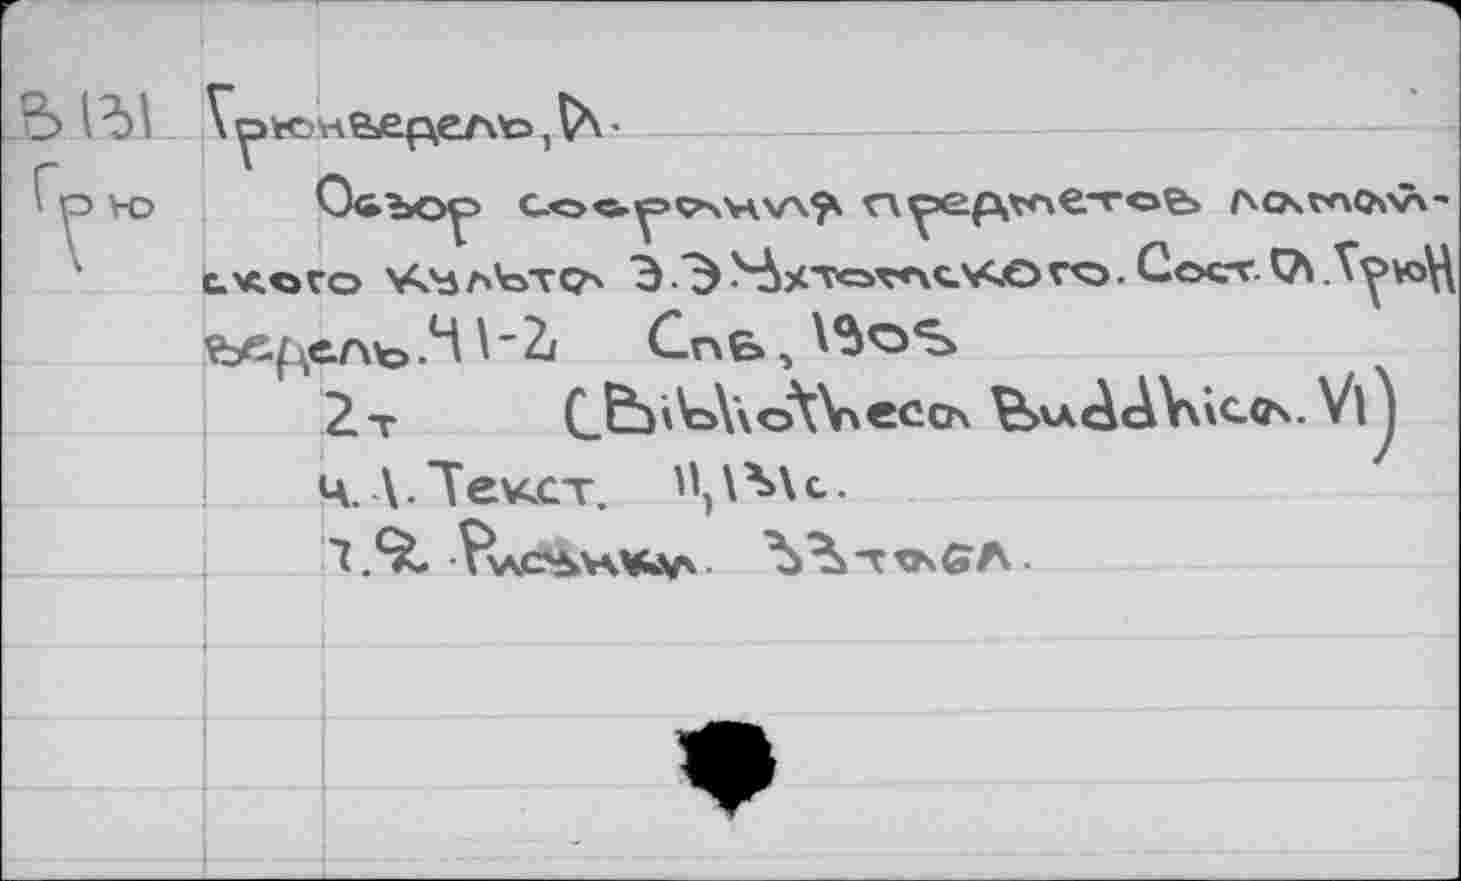 В 131 Грюнведель, А.
Грю Обзор собрания предметов ламай-
ского культа Э.Э.Ухтомского. Сост. А. Грюн
ведель. Ч 1-2, Спб, 1905
2 т (Bibliotheca Buddhica. VI)
ч. 1. Текст. 11, 131 с.
2. Рисунки. 33 табл.